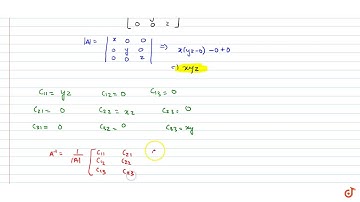 [ 0 0 z ]
|A| = | x 0 0 | ⇒ x(yz-0) -0+0
| 0 y 0 |
| 0 0 z | ⇒ xyz
C11 = yz C12 = 0 C13 = 0
C21 = 0 C22 = xz C23 = 0
C31 = 0 C32 = 0 C33 = xy
A⁻¹ = 1/|A| [ C11 C21
C12 C22
C13 C23